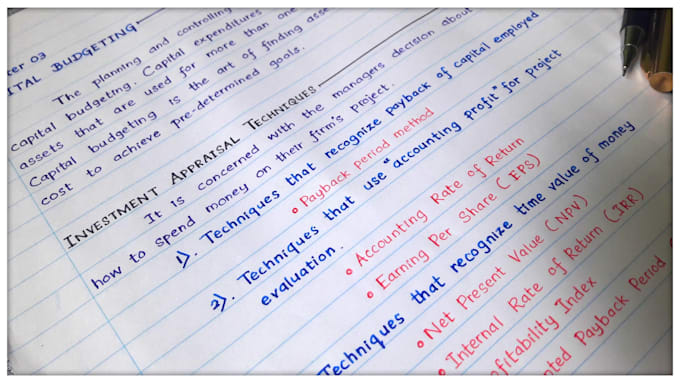 ter 03
ITAL BUDGETING
The planning and controlling
capital budgeting. Capital expenditures
assets that are used for more than one
Capital budgeting is the art of finding asse
cost to achieve pre-determined goals.
INVESTMENT APPRAISAL TECHNIQUES
It is concerned with the managers decision about
how to spend money on their firm's project.
1). Techniques that recognize payback of capital employed
• Payback period method
2). Techniques that use "accounting profit" for project
evaluation.
• Accounting Rate of Return
• Earning Per Share (EPS)
Techniques that recognize time value of money
• Net Present Value (NPV)
• Internal Rate of Return (IRR)
ofitability Index
nted Payback Period